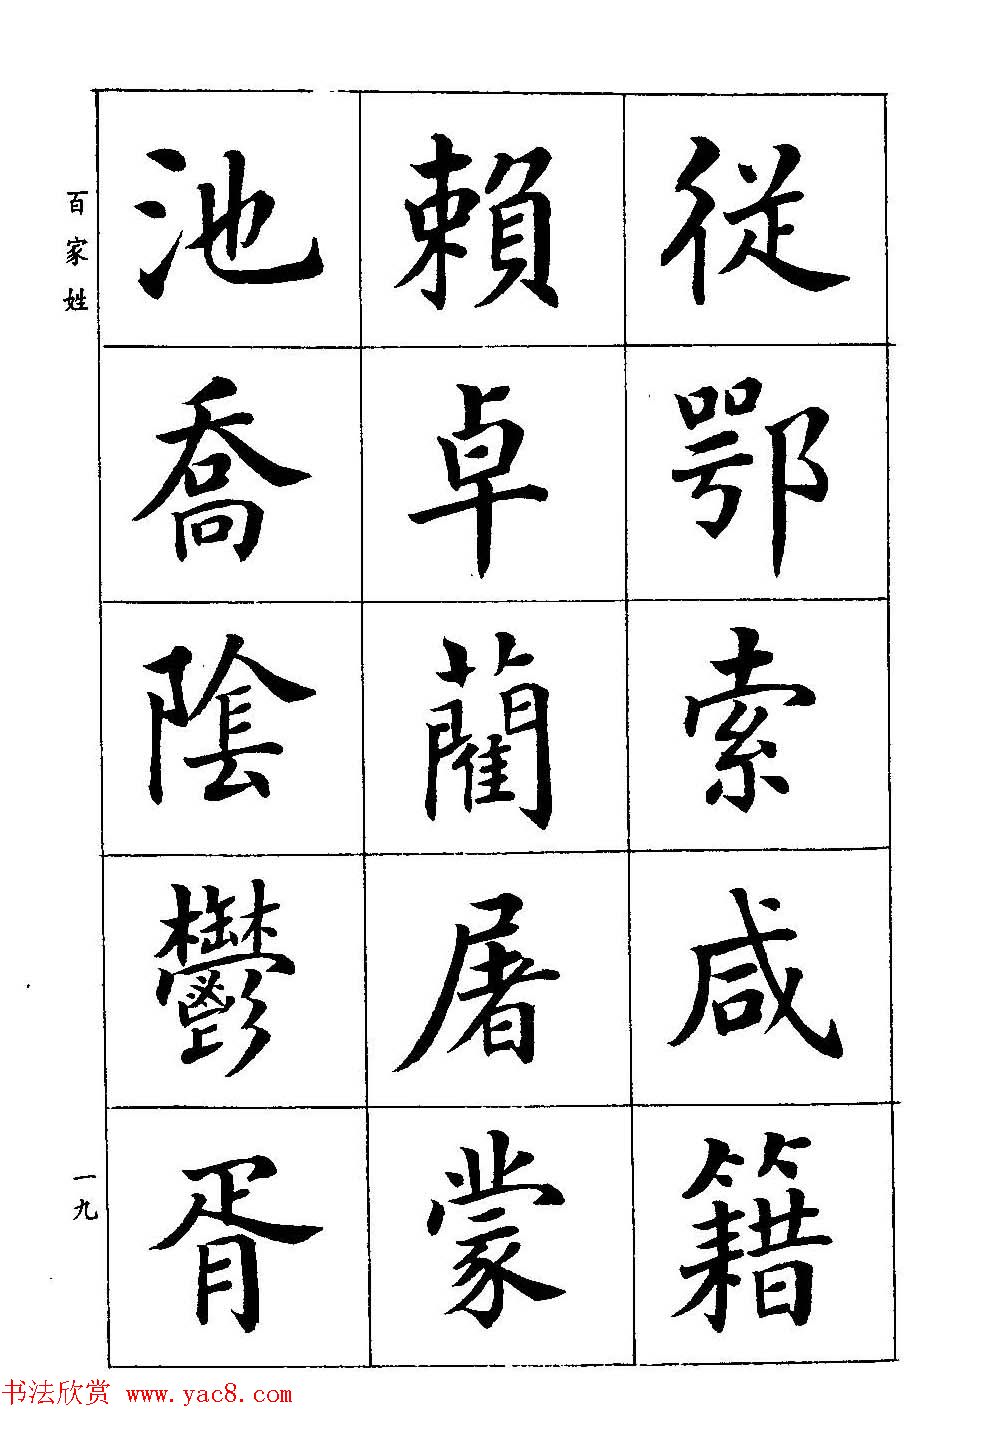 從鄂索咸籍
賴卓藺屠蒙
池喬陰鬱胥
百家姓
一九
书法欣赏 www.yac8.com